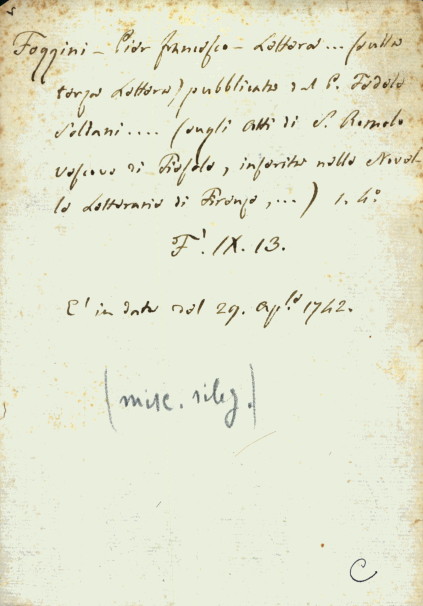 Foggini - Pier francesco - Lettera... (sulla
terza Lettera) pubblicata dal P. Fedele
Soldani.... (sugli Atti di S. Romolo
vescovo di Fiesole, inserita nelle Novel-
le Letterarie di Firenze,...) 1. 4°.
F'. IX. 13.
E' in data del 29. Aple 1742.
(misc. rileg.)
C